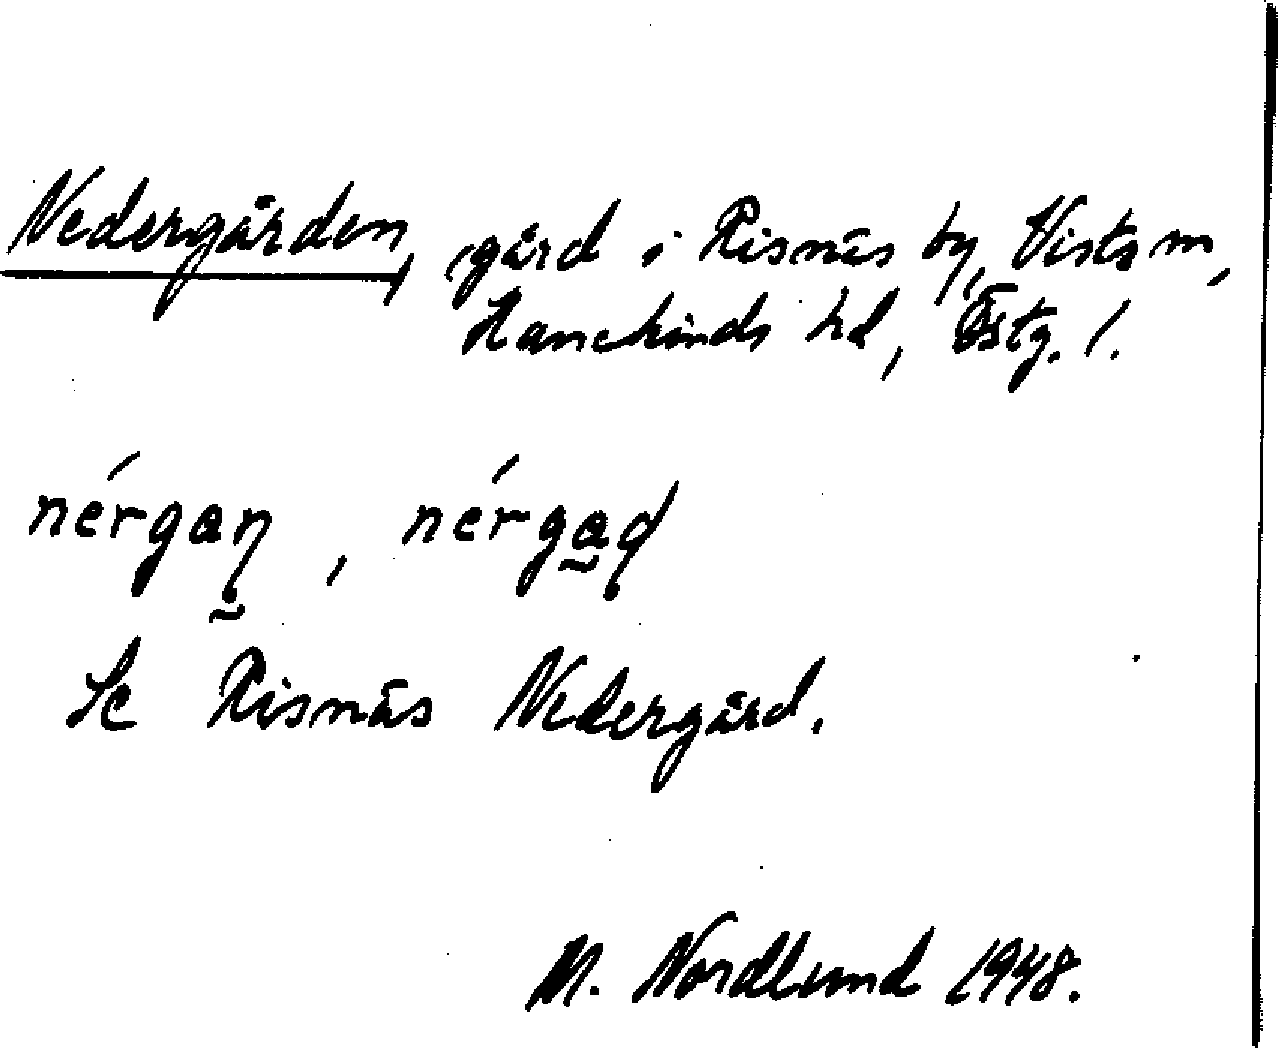 Nedergården, gård i Risnäs by, Vists sn,
Hanekinds hd, Östg. l.
nérgaṇ, nérgaḍ
Se Risnäs Nedergård.
M. Nordlund 1948.